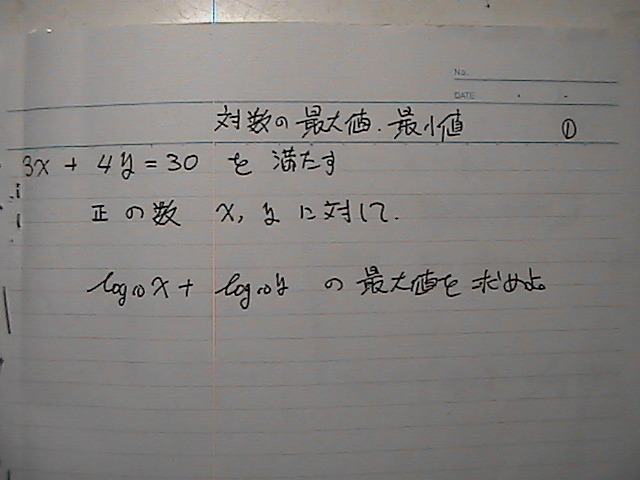 No.
DATE
対数の最大値.最小値 ①
3x + 4y = 30 を 満たす
正の数 x, y に対して.
log₁₀x + log₁₀y の最大値を求めよ。